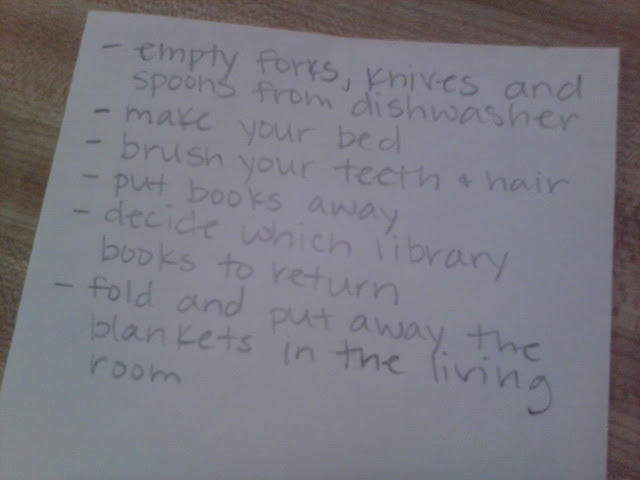 - empty forks, knives and
spoons from dishwasher
- make your bed
- brush your teeth + hair
- put books away
- decide which library
books to return
- fold and put away the
blankets in the living
room